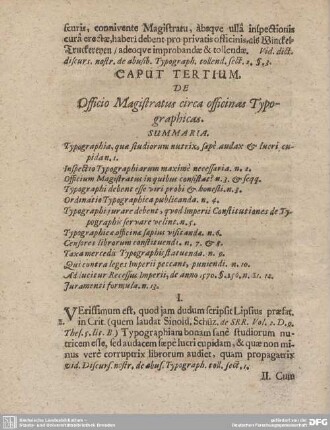 scuris, connivente Magistratu, absqve ullâ inspectionis
curâ erectæ, haberi debent pro privatis officinis, als Winckel-
Truckereyen / adeoqve improbandæ & tollendæ. Vid. dict.
discurs. nostr. de abusib. Typograph. tollend. sect. 2, §. 3.
CAPUT TERTIUM.
DE
Officio Magistratus circa officinas Typo-
graphicas.
SUMMARIA.
Typographia, quæ studiorum nutrix, sæpè audax & lucri cu-
pida n. 1.
Inspectio Typographiarum maximè necessaria. n. 2.
Officium Magistratus in quibus consistat? n. 3. & seqq.
Typographi debent esse viri probi & honesti. n. 3.
Ordinatio Typographica publicanda. n. 4.
Typographi jurare debent, quod Imperii Constitutiones de Ty-
pographis servare velint. n. 5.
Typographica officina sæpius visitanda. n. 6.
Censores librorum constituendi. n. 7. & 8.
Taxa merceda Typographis statuenda. n. 9.
Qui contra leges Imperii peccant, puniendi. n. 10.
Adjicitur Recessus Imperii, de anno 1570. §. 154. n. 11. 12.
Juramenti formula. n. 13.
I.
VErissimum est, quod jam dudum scripsit Lipsius præfat.
in Crit. (quem laudat Sinold. Schüz. de SRR. Vol. 2. D. 9.
Thes. 5. lit. B.) Typographiam bonam sanè studiorum nu-
tricem esse, sed audacem sæpe lucri cupidam, & quæ non mi-
nus verè corruptrix librorum audiet, quam propagatrix
vid. Discurs. nostr. de abus. Typograph. toll. sect. 1.
II. Cum